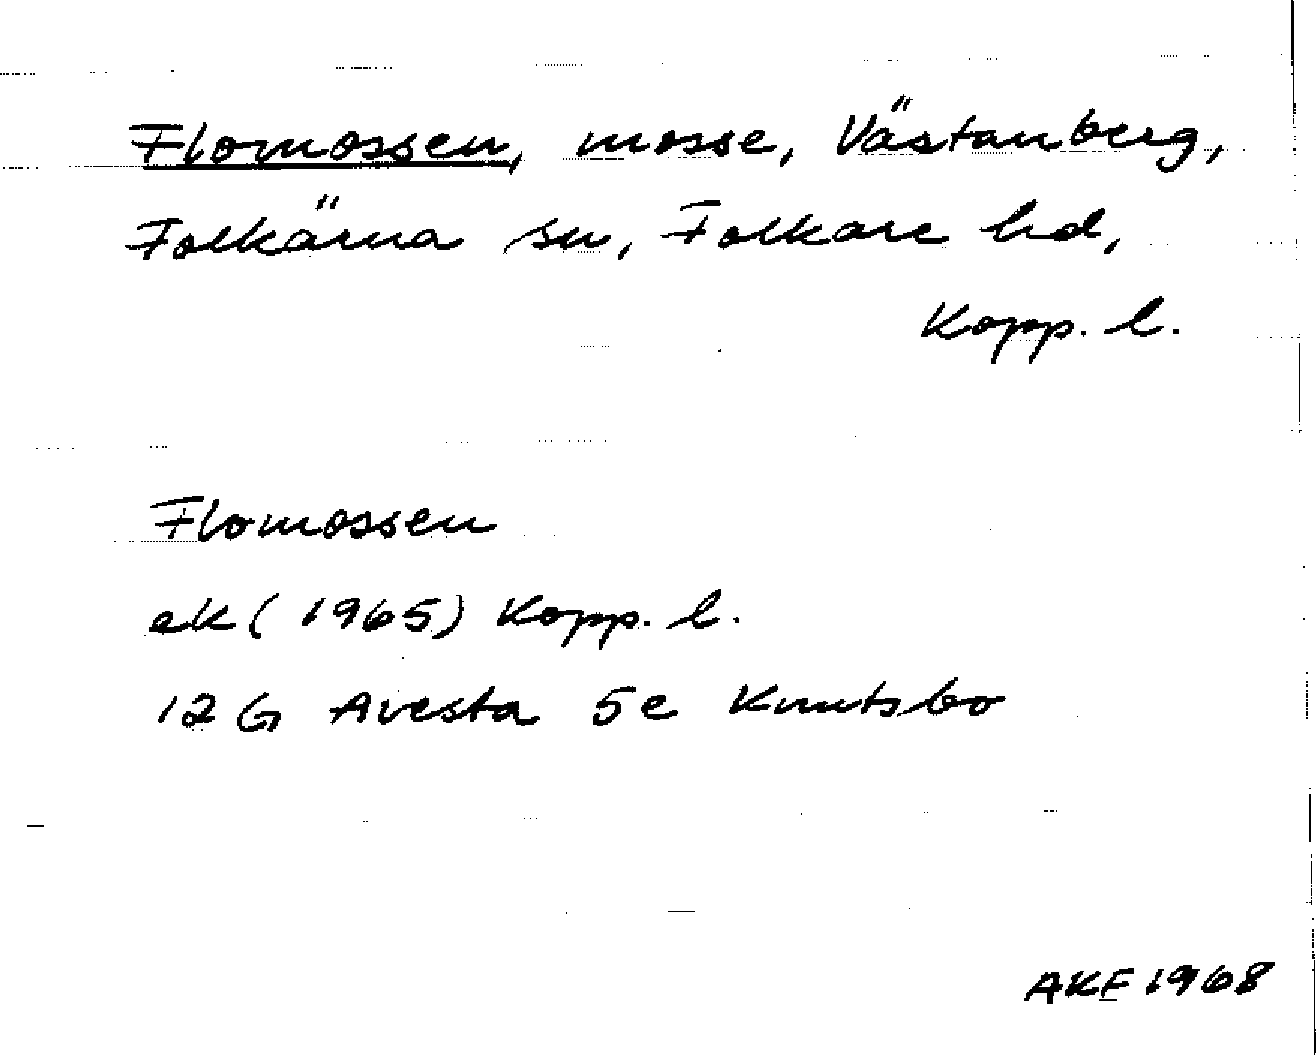 Flomossen, mosse, Västanberg,
Folkärna sn, Folkare hd,
Kopp. l.
Flomossen
ek (1965) Kopp. l.
12 G Avesta 5e Knutsbo
AKE 1968